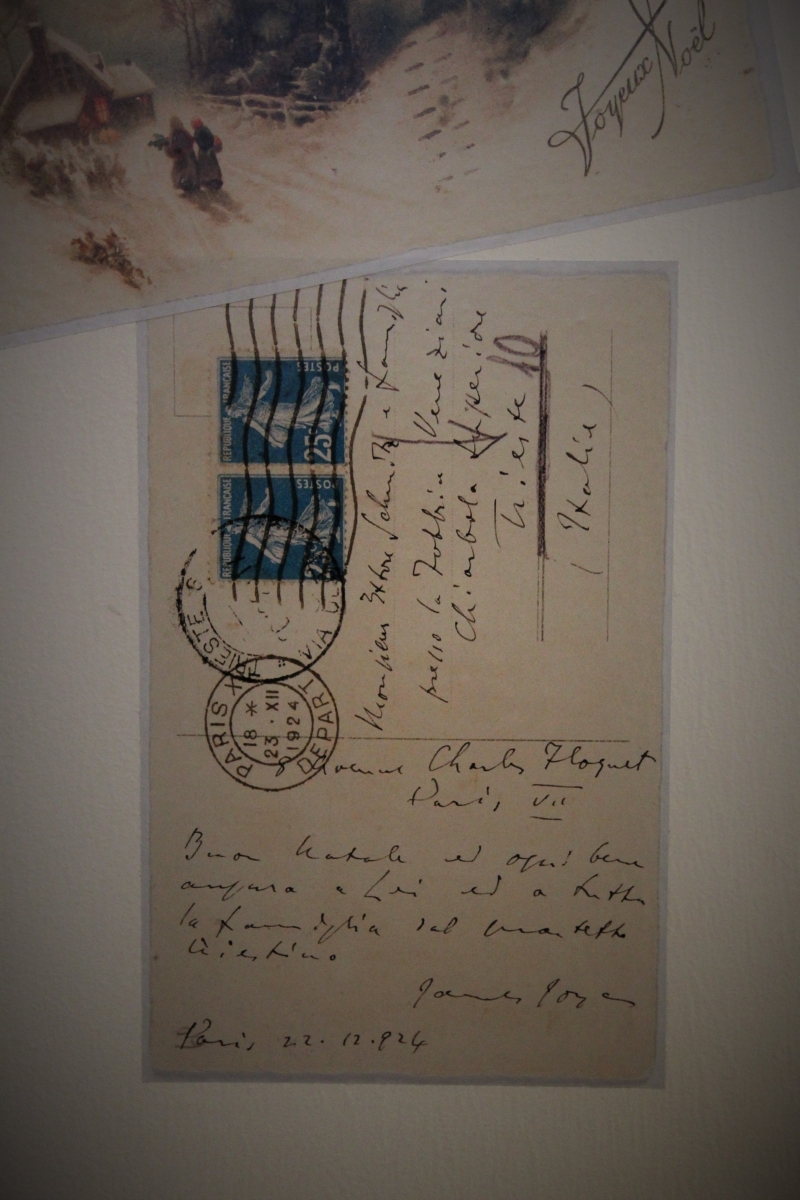 Joyeux Noël
REPUBLIQUE FRANÇAISE
POSTES
25c
REPUBLIQUE FRANÇAISE
POSTES
TRIESTE
VIA
PARIS X
18 *
23 · XII
1924
DEPART
Monsieur Ettore Schmitz e famiglia
presso la Fabbrica Veneziani
Chiarbola Superiore
Trieste 10
(Italie)
8 Avenue Charles Floquet
Paris, VII
Buon Natale ed ogni bene
augura a Lei ed a tutta
la famiglia dal quartetto
triestino
James Joyce
Paris 22.12.924